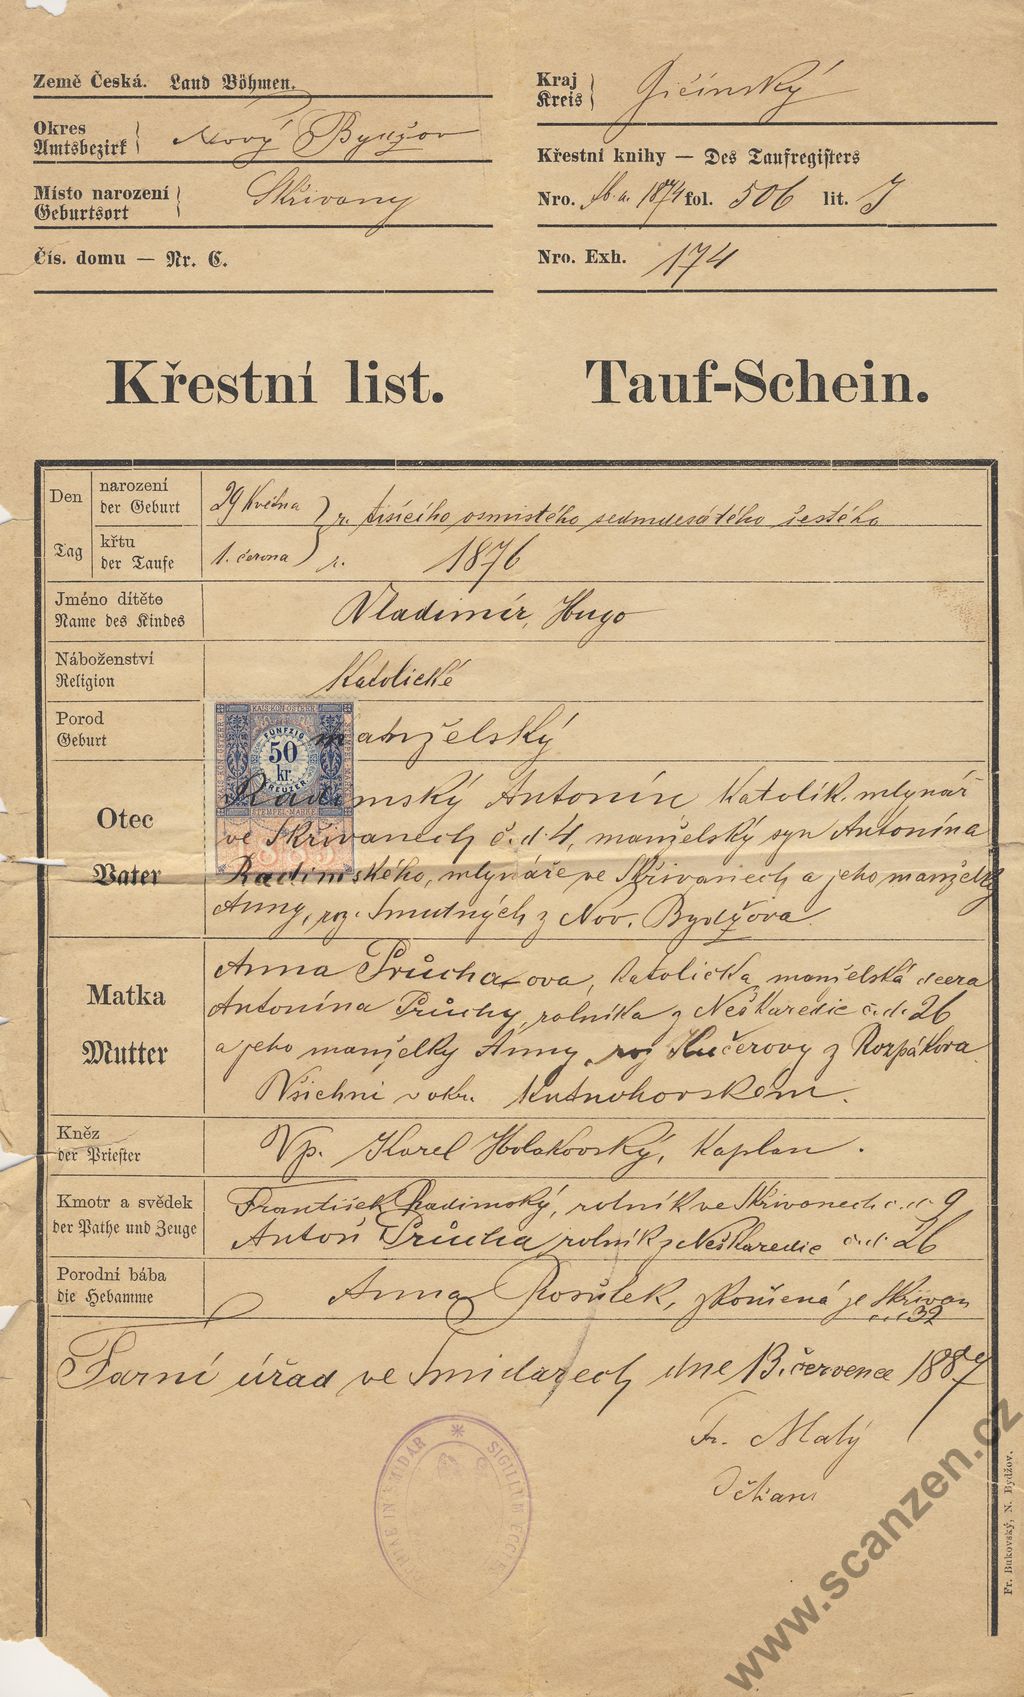 Země Česká. Land Böhmen.
Okres
Amtsbezirk
Nový Bydžov
Místo narození
Geburtsort
Skřivany
Čís. domu — Nr. C.
Kraj
Kreis
Gičínský
Křestní knihy — Des Taufregisters
Nro. 1874 fol. 506 lit. J
Nro. Exh. 174
Křestní list. Tauf-Schein.
Den narození
der Geburt
29 Května r. tisícího osmistého sedmdesátého šestého
Tag křtu
der Taufe
1. června r. 1876
Jméno dítěte
Name des Kindes
Vladimír, Hugo
Náboženství
Religion
Katolické
Porod
Geburt
manželský
KAIS. KÖN. ÖSTERR.
FÜNFZIG
50
kr.
KREUZER
STEMPEL-MARKE
Otec
Vater
Radimský Antonín Katolík, mlynář
ve Skřivanech č. d. 4, manželský syn Antonína
Radimského, mlynáře ve Skřivanech a jeho manželky
Anny, roz. Smutných z Nov. Bydžova
Matka
Mutter
Anna Průchova, Katolička, manželská dcera
Antonína Průchy, rolníka z Neškaredic č. d. 26
a jeho manželky Anny, roz Kučerovy z Rozpákova.
Všichni v okr. Kutnohorském.
Kněz
der Priester
Vp. Karel Holakovský, Kaplan.
Kmotr a svědek
der Pathe und Zeuge
František Radimský, rolník ve Skřivanech č. d. 9
Antoň Průcha rolník z Neškaredic č. d. 26
Porodní bába
die Hebamme
Anna Rosůlek, zkoušená ze Skřivan
č. d. 32
Farní úřad ve Smidarech dne 13. července 1887
Fr. Malý
Děkan
SIGILLUM ECCLE
IN SMIDAR
Fr. Bukovský, N. Bydžov.
www.scanzen.cz